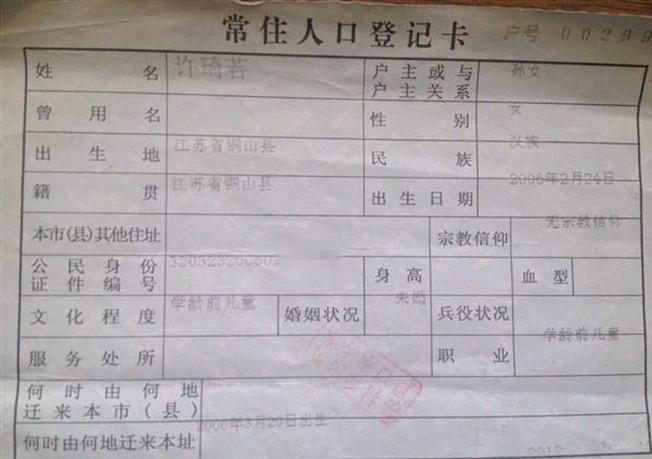 常住人口登记卡
户号 00299
姓名 许琦若 户主或与户主关系 孙女
曾用名 性别 女
出生地 江苏省铜山县 民族 汉族
籍贯 江苏省铜山县 出生日期 2006年2月24日
本市(县)其他住址 宗教信仰 无宗教信仰
公民身份证件编号 320323200602 身高 血型
文化程度 学龄前儿童 婚姻状况 未婚 兵役状况
服务处所 职业 学龄前儿童
何时由何地迁来本市(县)
何时由何地迁来本址 2006年3月20日出生